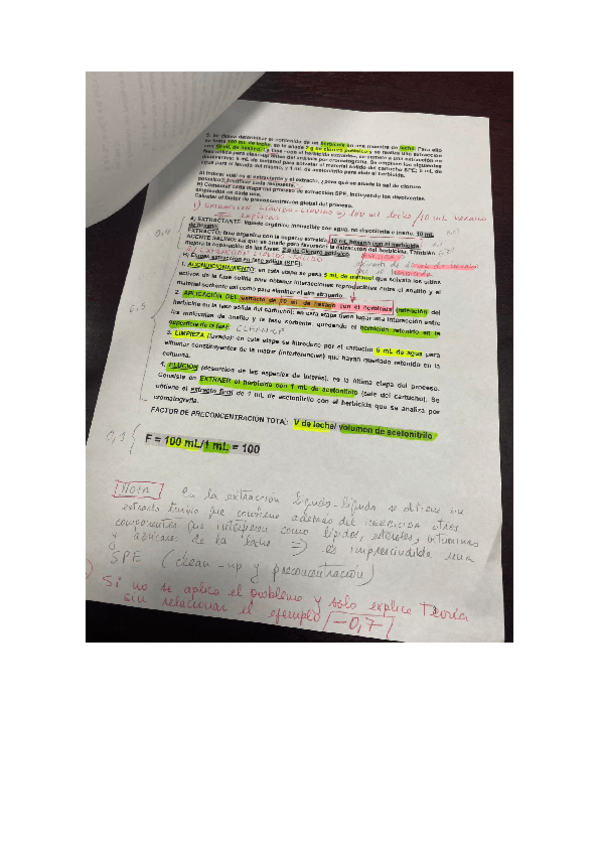 5. Se desea determinar el contenido de un herbicida en una muestra de leche. Para ello
se toma 100 mL de leche, se le añade 2 g de cloruro potásico y se realiza una extracción
con 10 mL de hexano. La fase con el herbicida extraído, se somete a una extracción en
fase sólida para clean-up antes del análisis por cromatografía. Se emplean los siguientes
disolventes: 5 mL de metanol para activar el material sólido del cartucho SPE; 5 mL de
agua para el lavado del mismo y 1 mL de acetonitrilo para eluir el herbicida.
a) Indicar cuál es el extractante y el extracto. ¿para qué se añade la sal de cloruro
potásico? Justificar cada respuesta.
b) Comentar cada etapa del proceso de extracción SPE, incluyendo los disolventes
empleados en cada una.
Calcular el factor de preconcentración global del proceso.
1) EXTRACCIÓN LÍQUIDO-LÍQUIDO => 100 mL leche / 10 mL hexano
a) EXTRACTANTE: líquido orgánico inmiscible con agua, no disolvente o inerte. 10 mL
de hexano.
EXTRACTO: fase orgánica con la especie extraída. 10 mL hexano con el herbicida
AGENTE SALINO: sal que se añade para favorecer la extracción del herbicida. También
mejora la separación de las fases. 2 g de Cloruro potásico
2) EXTRACCIÓN LÍQUIDO-SÓLIDO
b) Etapas extracción en fase sólida (SPE):
1. ACONDICIONAMIENTO: en esta etapa se pasa 5 mL de metanol que activa los sitios
activos de la fase sólida para obtener interacciones reproducibles entre el analito y el
material sorbente así como para eliminar el aire atrapado.
2. APLICACIÓN DEL extracto de 10 mL de hexano con el herbicida (retención del
herbicida en la fase sólida del cartucho): en esta etapa tiene lugar una interacción entre
las moléculas de analito y la fase sorbente, quedando el herbicida retenido en la
superficie de la fase. CLEAN-UP
3. LIMPIEZA (lavado): en esta etapa se introduce por el cartucho 5 mL de agua para
eliminar constituyentes de la matriz (interferencias) que hayan quedado retenida en la
columna.
4. ELUCIÓN (desorción de las especies de interés), es la última etapa del proceso.
Consiste en EXTRAER el herbicida con 1 mL de acetonitrilo (sale del cartucho). Se
obtiene el extracto final de 1 mL de acetonitrilo con el herbicida que se analiza por
cromatografía.
0,5
FACTOR DE PRECONCENTRACIÓN TOTAL: V de leche/ volumen de acetonitrilo
0,1 F = 100 mL/1 mL = 100
Nota En la extracción líquido-líquido se obtiene un
extracto turbio que contiene además del herbicida otros
componentes que interfieren como lípidos, esteroles, vitaminas
y azúcares de la leche => es imprescindible una
SPE (clean-up y preconcentración)
Si no se aplica el problema y solo explica Teoría
sin relacionar el ejemplo -0,7